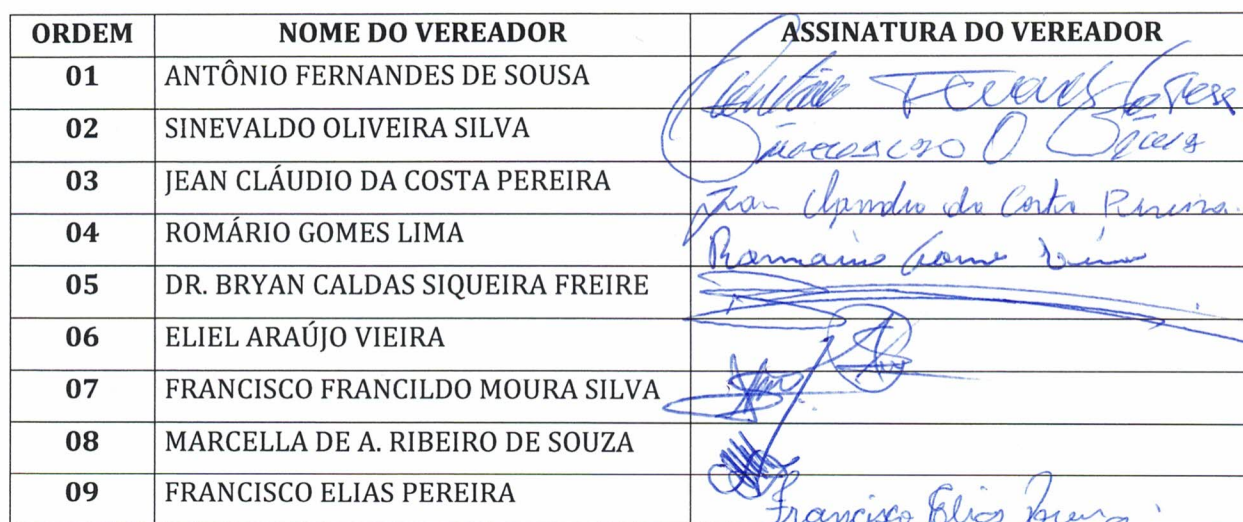 ORDEM NOME DO VEREADOR ASSINATURA DO VEREADOR
01 ANTÔNIO FERNANDES DE SOUSA
02 SINEVALDO OLIVEIRA SILVA
03 JEAN CLÁUDIO DA COSTA PEREIRA Jean Claudio da Costa Pereira
04 ROMÁRIO GOMES LIMA Romario Gomes Lima
05 DR. BRYAN CALDAS SIQUEIRA FREIRE
06 ELIEL ARAÚJO VIEIRA
07 FRANCISCO FRANCILDO MOURA SILVA
08 MARCELLA DE A. RIBEIRO DE SOUZA
09 FRANCISCO ELIAS PEREIRA Francisco Elias Pereira